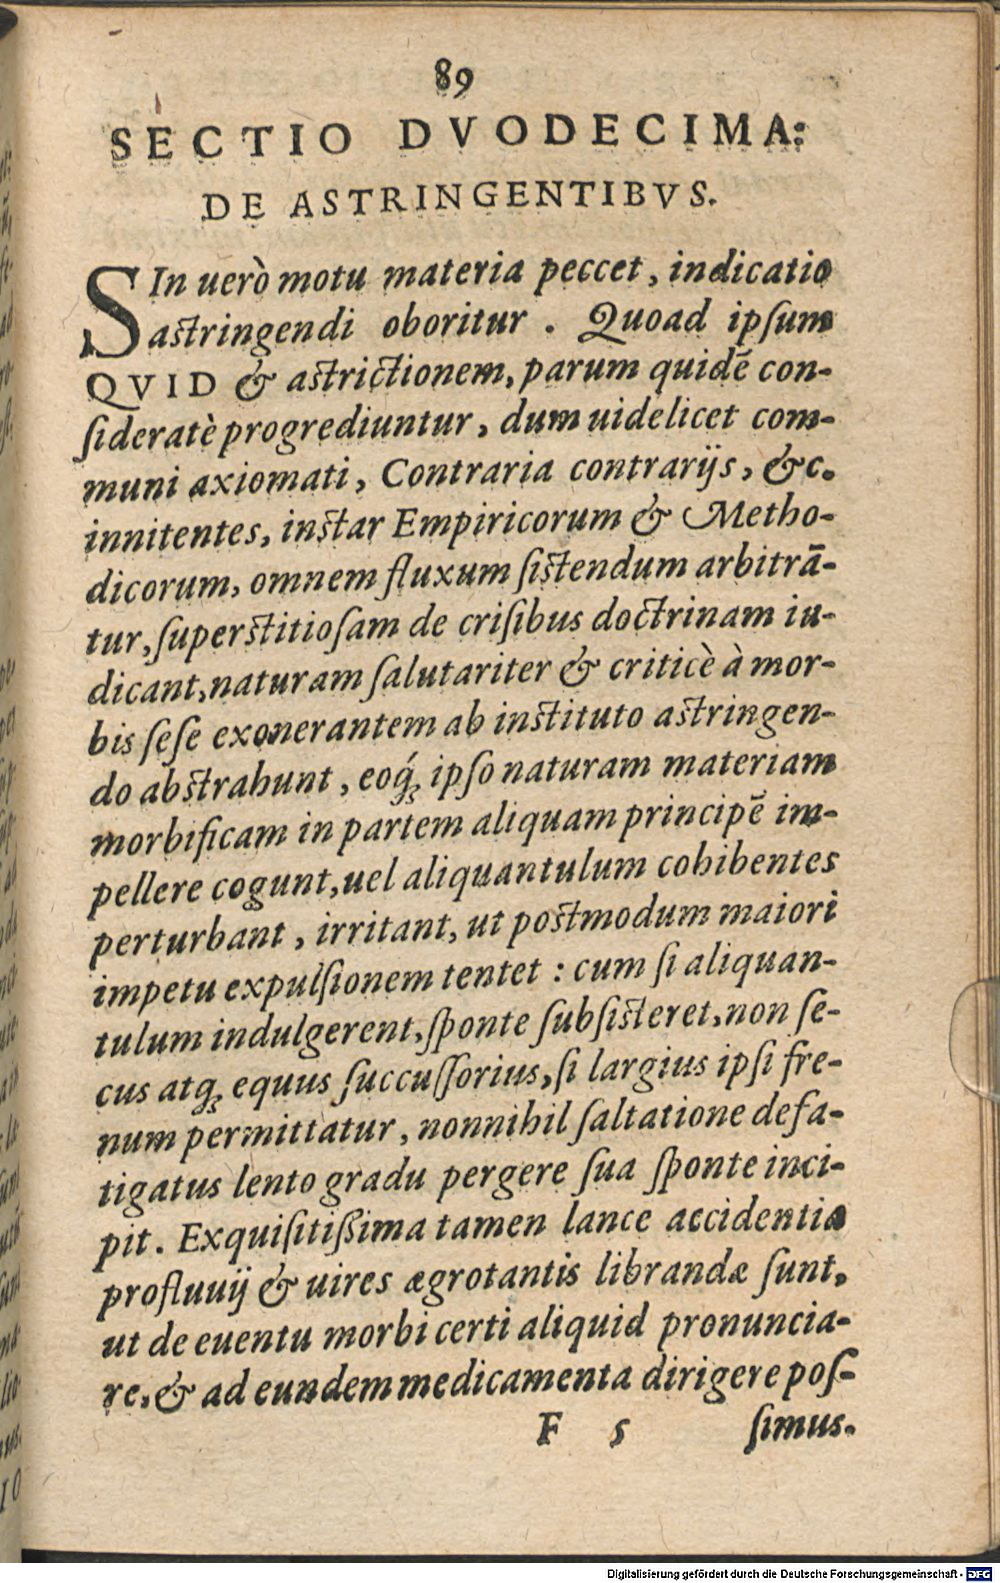 89
SECTIO DVODECIMA:
DE ASTRINGENTIBVS.
SIn uerò motu materia peccet, indicatio
astringendi oboritur. Quoad ipsum
QVID & astrictionem, parum quidē con-
sideratè progrediuntur, dum uidelicet com-
muni axiomati, Contraria contrarijs, &c.
innitentes, instar Empiricorum & Metho-
dicorum, omnem fluxum sistendum arbitrā-
tur, superstitiosam de crisibus doctrinam iu-
dicant, naturam salutariter & criticè à mor-
bis sese exonerantem ab instituto astringen-
do abstrahunt, eoq́; ipso naturam materiam
morbificam in partem aliquam principē im-
pellere cogunt, uel aliquantulum cohibentes
perturbant, irritant, ut postmodum maiori
impetu expulsionem tentet : cum si aliquan-
tulum indulgerent, sponte subsisteret, non se-
cus atq; equus succussorius, si largius ipsi fre-
num permittatur, nonnihil saltatione defa-
tigatus lento gradu pergere sua sponte inci-
pit. Exquisitißima tamen lance accidentia
profluuij & uires ægrotantis librandæ sunt,
ut de euentu morbi certi aliquid pronuncia-
re, & ad eundem medicamenta dirigere pos-
F 5 simus.
Digitalisierung gefördert durch die Deutsche Forschungsgemeinschaft - DFG